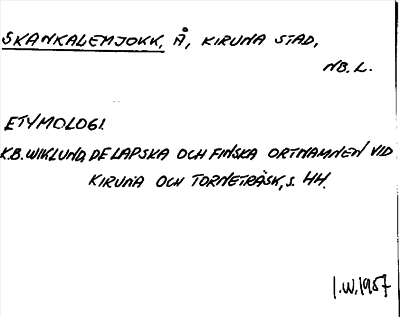 SKANKALEMJOKK, Å, KIRUNA STAD,
NB. L.
ETYMOLOGI.
K.B. WIKLUND, DE LAPSKA OCH FINSKA ORTNAMNEN VID
KIRUNA OCH TORNETRÄSK, S. HH.
I.W. 1957